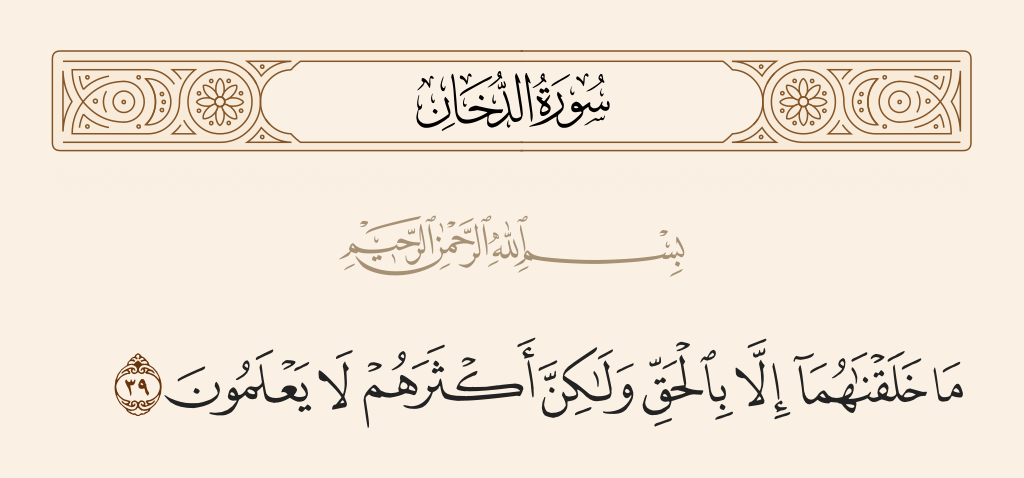 سُورَةُ الدُّخَانِ
بِسْمِ ٱللَّهِ ٱلرَّحْمَٰنِ ٱلرَّحِيمِ
مَا خَلَقْنَٰهُمَآ إِلَّا بِٱلْحَقِّ وَلَٰكِنَّ أَكْثَرَهُمْ لَا يَعْلَمُونَ ٣٩